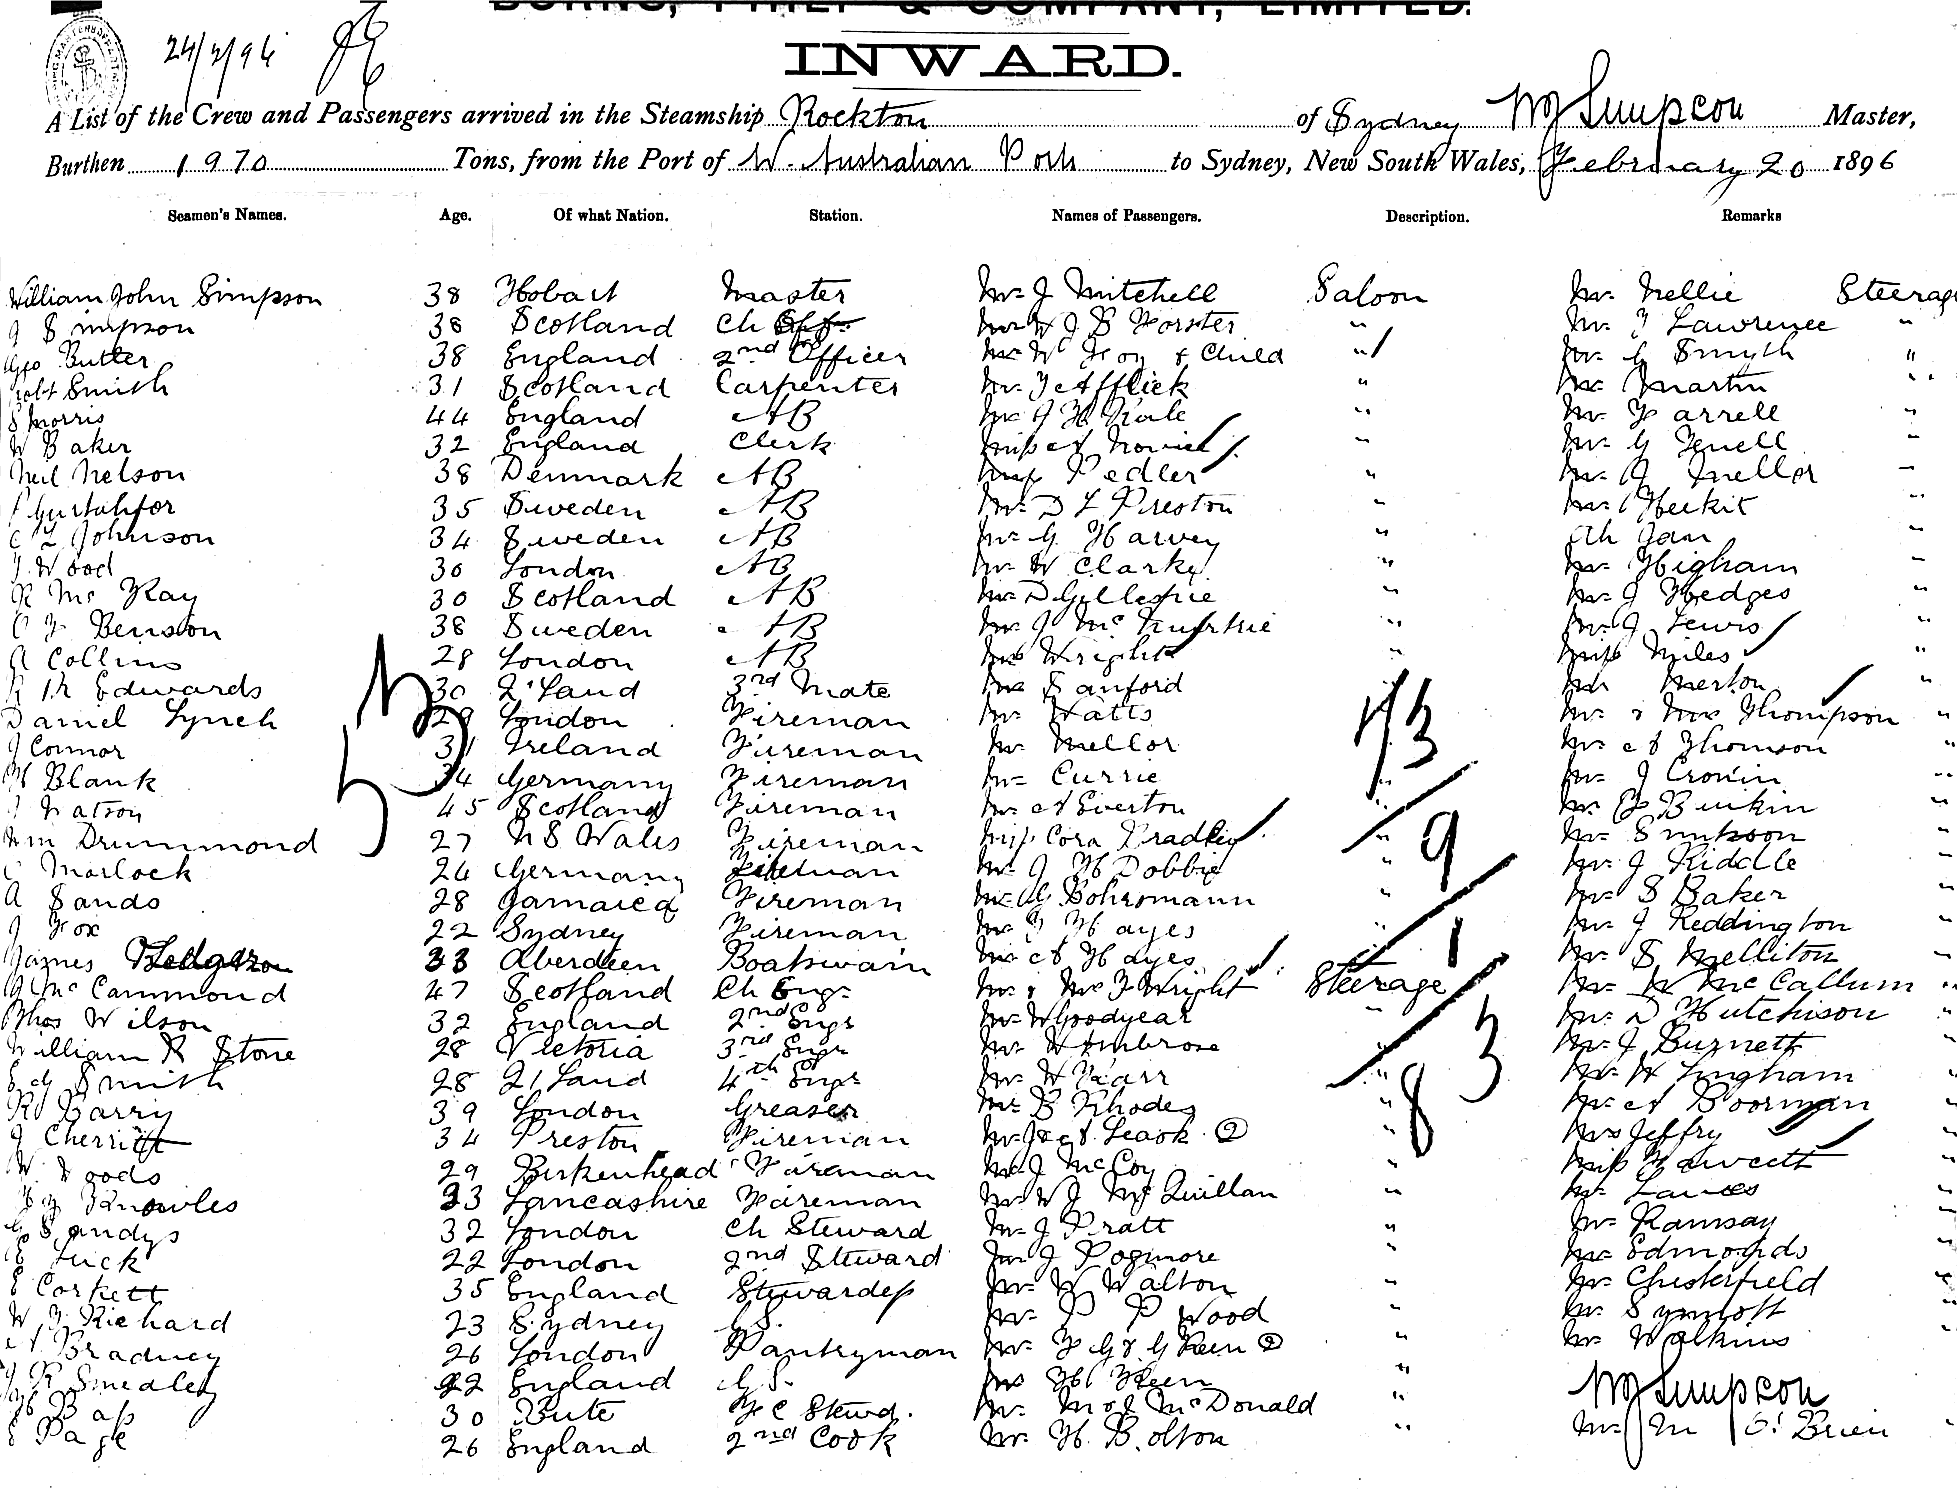 BURNS, PHILP & COMPANY, LIMITED.
24/2/96
INWARD.
A List of the Crew and Passengers arrived in the Steamship Rockton of Sydney WJ Simpson Master,
Burthen 1970 Tons, from the Port of W. Australian Ports to Sydney, New South Wales, February 20 1896
Seamen's Names. Age. Of what Nation. Station. Names of Passengers. Description. Remarks
William John Simpson 38 Hobart Master Mr J Mitchell Saloon Mr Nellie Steerage
J Simpson 38 Scotland Ch Off. J B Forster " Mr Lawrence "
Geo Butler 38 England 2nd Officer & Child " Mr G Smyth "
Robt Smith 31 Scotland Carpenter Mr Afflick " Mr Martin "
S Morris 44 England AB " Mr Farrell "
W Baker 32 England Clerk Miss " Mr G "
Neil Nelson 38 Denmark AB Miss Pedler " Mr J Mellor "
35 Sweden AB Mr D L Preston " Mr "
C L Johnson 34 Sweden AB Mr G Harvey " Ah "
Wood 30 London AB Mr W Clarke " Mr Higham "
R McKay 30 Scotland AB Mr D Gillespie " Mr J Hedges "
C F Benson 38 Sweden AB Mr J " Mr J Lewis "
A Collins 28 London AB Mrs Wright " Miss Miles "
Edwards 30 Z'Land 3rd Mate Sanford " Merton "
Daniel Lynch 29 London Fireman Mr Watts " Mr & Mrs Thompson "
J Connor 31 Ireland Fireman Mr Mellor " Mr A Thomson "
H Blank 34 Germany Fireman Mr Currie " Mr J Cronin "
Watson 45 Scotland Fireman Mr A Everton " Mr "
Wm Drummond 27 N S Wales Fireman Miss Cora Bradley " Mr Simpson "
C Marlock 24 Germany Fireman Mr J H Dobbie " Mr J Riddle "
A Sands 28 Jamaica Fireman Mr G Bohrsmann " Mr S Baker "
J Fox 22 Sydney Fireman Hayes " Mr J Reddington "
James 33 Aberdeen Boatswain A Hayes " Mr S Melliton "
McCammond 47 Scotland Ch Engr Mr & Mrs J Wright Steerage Mr W McCallum "
Thos Wilson 32 England 2nd Engr Mr W Goodyear " Mr D Hutchison "
William R Stone 28 Victoria 3rd Engr Mr Ambrose " Mr J Burnett "
Ed Smith 28 Z'Land 4th Engr Mr W Karr " Mr H Lingham "
Barry 39 London Greaser B Rhodes " Mr A Boorman "
J Cherritt 34 Preston Fireman Leask (2) " Mrs Jeffry "
W Woods 29 Birkenhead Fireman Mr J McCoy " Miss Fawcett "
Knowles 23 Lancashire Fireman Mr W J McQuillan " Mr "
G Sandys 32 London Ch Steward Mr J Pratt " Mr Ramsay "
E Tuck 22 London 2nd Steward Mr J Pogmore " Mr Edmonds "
E Corkett 35 England Stewardess Mr W Walton " Mr Chesterfield "
W Richard 23 Sydney G.S. Mr P P Wood " Mr Synnott "
A Bradney 26 London Pantryman Mr F G & G Keen (2) " Mr Watkins
J R Smedley 22 England G.S. Mrs H Keen " WJ Simpson
30 Bute F C Stewd. Mr M & J McDonald " Mr M O'Brien "
E Page 26 England 2nd Cook Mr H. Bolton "
53
13
9
1
3
8